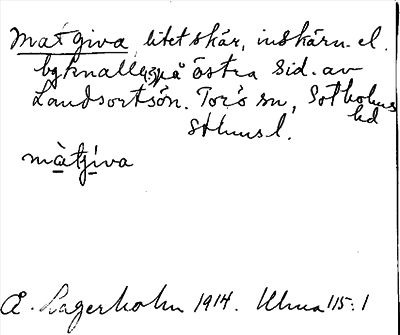 Matgiva, litet skär, inskärn. el.
bgknalle, på östra sid. av
Landsortsön. Torö sn, Sotholms
hd
Sthms l.
màtgiva
Å. Lagerholm 1914. Uhua 115:1